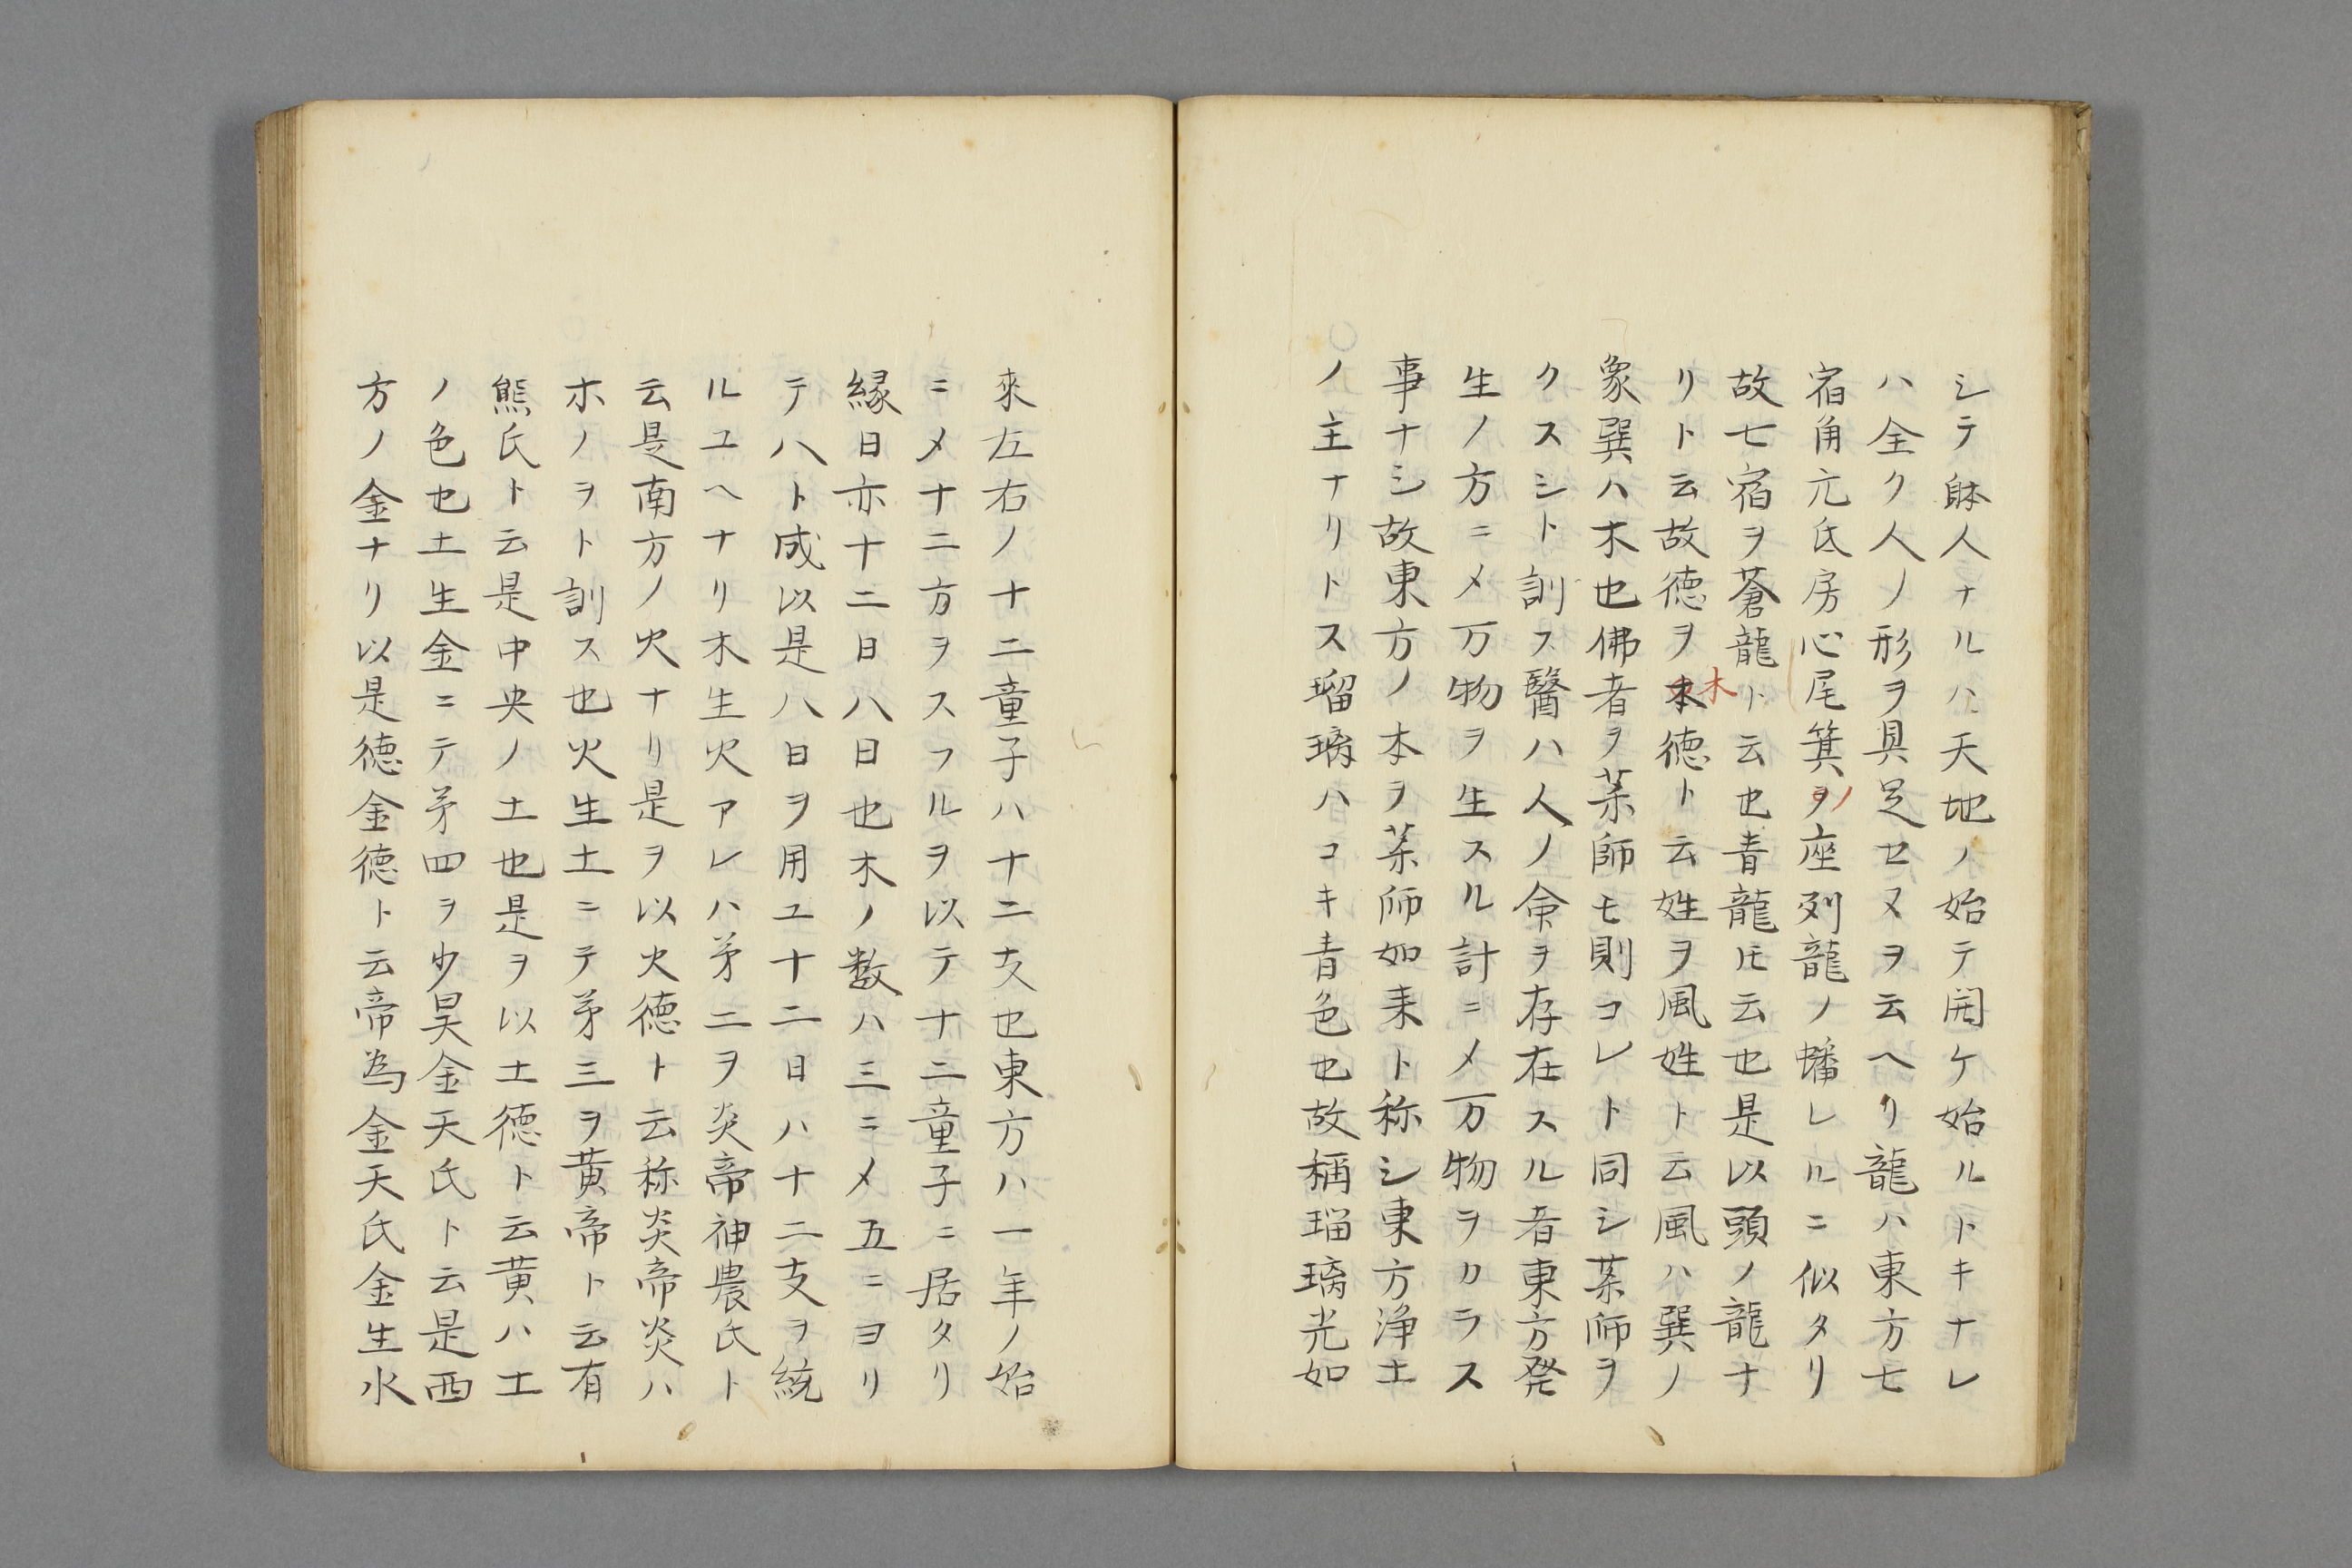 シテ躰人ナルハ天地ノ始テ開ケ始ルトキナレ
ハ全ク人ノ形ヲ具足セヌヲ云ヘリ龍ハ東方七
宿角亢氐房心尾箕ヲノ座列龍ノ蟠レルニ似タリ
故七宿ヲ蒼龍ト云也青龍トモ云也是以頭ノ龍ナ
リト云故徳ヲ木徳ト云姓ヲ風姓ト云風ハ巽ノ
木
象巽ハ木也佛者ヲ薬師モ則コレト同シ薬師ヲ
クスシト訓ス醫ハ人ノ命ヲ存在スル者東方発
生ノ方ニメ万物ヲ生スル計ニメ万物ヲカラス
事ナシ故東方ノ本ヲ薬師如来ト称シ東方浄土
ノ主ナリトス瑠璃ハコキ青色也故稱瑠璃光如
來左右ノ十二童子ハ十二支也東方ハ一年ノ始
ニメ十二方ヲスフルヲ以テ十二童子ニ居タリ
縁日亦十二日八日也木ノ数ハ三ニメ五ニヨリ
テハト成以是八日ヲ用ユ十二日ハ十二支ヲ統
ルユヘナリ木生火アレハ茅二ヲ炎帝神農氏ト
云是南方ノ火ナリ是ヲ以火徳ト云称炎帝炎ハ
ホノヲト訓ス也火生土ニテ茅三ヲ黄帝ト云有
熊氏ト云是中央ノ土也是ヲ以土徳ト云黄ハ土
ノ色也土生金ニテ茅四ヲ少昊金天氏ト云是西
方ノ金ナリ以是徳金徳ト云帝為金天氏金生水